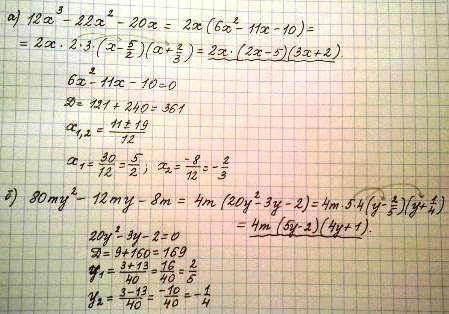 а) 12x³ - 22x² - 20x = 2x(6x² - 11x - 10) =
= 2x · 2·3·(x - 5/2)(x + 2/3) = 2x·(2x-5)(3x+2).
6x² - 11x - 10 = 0
D = 121 + 240 = 361
x₁,₂ = (11 ± 19)/12
x₁ = 30/12 = 5/2 ; x₂ = -8/12 = -2/3
б) 80my² - 12my - 8m = 4m(20y² - 3y - 2) = 4m·5·4(y - 2/5)(y + 1/4)
= 4m(5y-2)(4y+1).
20y² - 3y - 2 = 0
D = 9 + 160 = 169
y₁ = (3+13)/40 = 16/40 = 2/5
y₂ = (3-13)/40 = -10/40 = -1/4